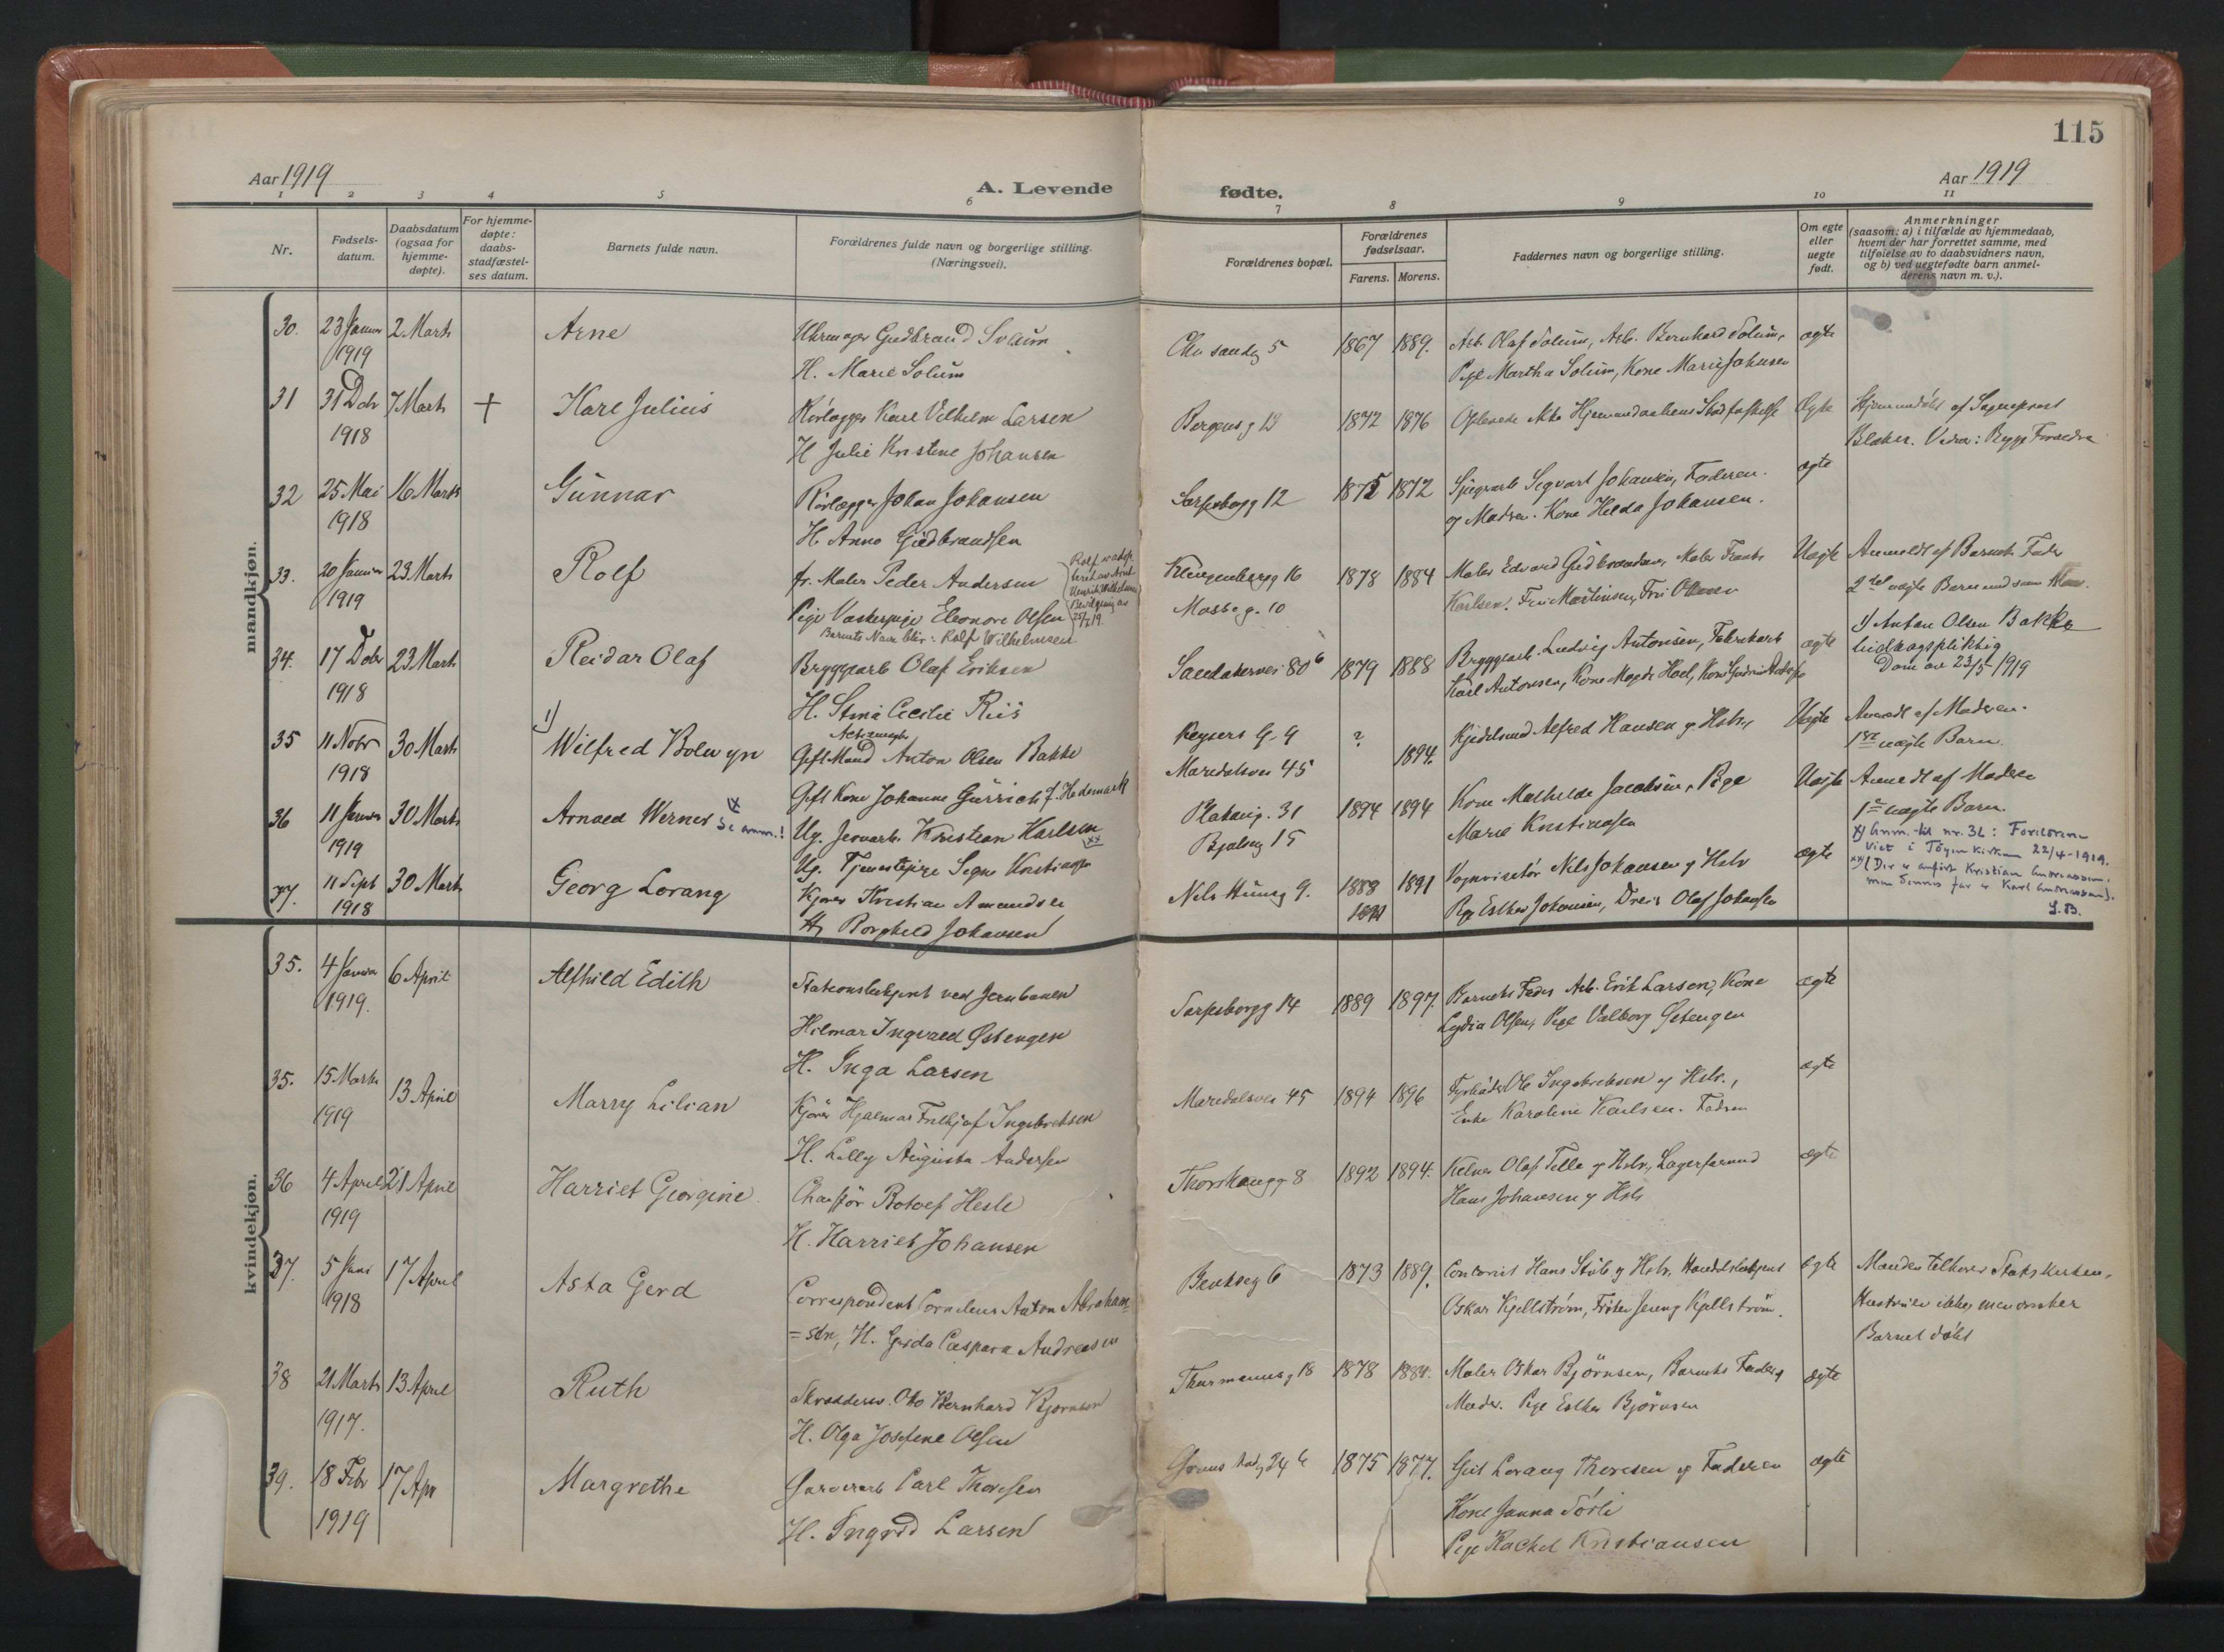 115
Aar 1919
A. Levende
fødte.
Aar 1919
1 2 3 4 5 6 7 8 9 10 11
Nr.
Fødsels-
datum.
Daabsdatum
(ogsaa for
hjemme-
døpte).
For hjemme-
døpte:
daabs-
stadfæstel-
ses datum.
Barnets fulde navn.
Forældrenes fulde navn og borgerlige stilling.
(Næringsvei).
Forældrenes bopæl.
Forældrenes
fødselsaar.
Farens. Morens.
Faddernes navn og borgerlige stilling.
Om egte
eller
uegte
født.
Anmerkninger
(saasom: a) i tilfælde av hjemmedaab,
hvem der har forrettet samme, med
tilføielse av to daabsvidners navn,
og b) ved uegtefødte barn anmel-
derens navn m. v.).
mandkjøn.
30. 23 Januar 2 Marts Arne Uhrmager Gudbrand Solum
1919 H. Marie Solum
5 1867 1889. Arb. Olaf Solum, Arb. Bernhard Solum, ægte
Pige Martha Solum, Kone Marie Johansen
31 31 Dcbr 7 Marts + Karl Julius Rörlægger Karl Vilhelm Larsen
1918 H Julie Kristine Johansen
Bergensg 1872 1876 Oplevede ikke Hjemmedaabens Stadfæstelse Ægte Hjemmedöbt af Sogneprest
Blaker. Vidner: Begge Forældre
32 25 Mai 16 Marts Gunnar Rörlægger Johan Johansen
1918 H. Anna Gudbrandsen
Sarpsborgg 12 1875 1872 Sigvart Johansen, Faderen ægte
og Madren. Kone Helda Johansen.
33. 20 Januar 23 Marts Rolf fr. Maler Peder Andersen
1919 Pige Vaskerpige Eleonore Olsen
Rolf er adop-
teret av Arnt
Henrik Wilhelmsen
Bevilgning av
25/7 19.
Barnets Navn blir: Rolf Wilhelmsen
Klingenbergg 16 1878 1884 Maler Edvard Gudbrandsen, Maler Frants Uægte Anmeldt af Barnets Fader
Mosseg. 10 Karlsen. Fru Martinsen, Fru Olsen 2det uægte Barn med samme
34. 17 Dcbr 23 Marts Reidar Olaf Bryggearb Olaf Eriksen
1918 H. Stina Cecilie Riis
Sandakervei 80 b 1879 1888 Bryggearb. Ludvig Antonsen, Fabrikarb ægte
Karl Antonsen, Kone Magda Hoel, Kone
1) Anton Olsen Bakke
bidragspliktig
Dom av 23/5 1919
35 11 Novbr 30 Marts 1) Wilfred Bolwyn Gift Mand Anton Olsen Bakke
1918 Gift Kone Johanne f. Hedemark
Keysers G. 9 ? Alfred Hansen og Hstr, Uægte Anmeldt af Moderen.
Maridalsvei 45 1894. 1ste uægte Barn.
36 11 Januar 30 Marts Arnold Werner x) Se anm.! Ug. Jernarb. Kristian Karlsen xx)
1919 Ug. Tjenestepige Signe Kristiansen
Platoug. 31 1894 1894 Kone Mathilde Jacobsen, Pige Uægte Anmeldt af Moderen
15 Marie Kristiansen 1ste uægte Barn.
x) Anm. til nr. 36: Foreldrene
viet i Tøyen kirken 22/4-1919.
xx) (Der er anført Kristian Andreassen.
men dennes far er Karl Andreassen).
S.B.
37. 11 Sept 30 Marts Georg Lorang Kjører Kristian Amundsen
1918 H. Borghild Johansen
Nils Hunsg 9. 1888 1891 Vognvisitør Nils Johansen og Hstr ægte
Pige Esther Johansen, Dreier Olaf Johansen
kvindekjøn.
35. 4 Januar 6 April Alfhild Edith Stationsbetjent ved Jernbanen
1919. Hilmar Ingvald Østengen
H. Inga Larsen
Sarpsborgg 14 1889 1897. Barnets Fader Arb. Erik Larsen, Kone ægte
Lydia Olsen, Pige Valborg Østengen
35. 15 Marts 13 April Marry Lilian Kjører Hjalmar Fritjof Ingebretsen
1919 H. Lilly Augusta Andersen
Maridalsvei 45 1894 1896 Fyrbøder Ole Ingebretsen og Hstr., ægte
Enke Karoline Karlsen. Fadren
36 4 April 21 April Harriet Georgine Chauffør Rolf Hesle
1919 H. Harriet Johansen
Thorshaugg 8 1892 1894. Kelner Olaf Telle og Hstr, Lagerformand ægte
Hans Johansen og Hstr
37. 5 Juni 17 April Asta Gerd Correspondent Cornelius Anton Abraham=
1918 =sen, H. Gerda Caspara Andreasen
Bentseg 6 1873 1889. Contorist Hans Stub og Hstr, Handelsbetjent ægte Manden tilhører Statskirken,
Oskar Kjellström, Frøken Jenny Kjellström. Hustruen ikke, men ønsker
Barnet döbt
38 21 Marts 13 April Ruth Skrædderm. Otto Bernhard Bjørnsen
1917. H. Olga Josefine Olsen
Thurmannsg 18 1878 1880. Maler Oskar Bjørnsen, Barnets Fader og ægte
Moder. Pige Esther Björnsen
39. 18 Febr 17 Apr Margrethe Garverarb Carl Thoresen
1919 H. Ingrid Larsen
24 b 1875 1877. Lorang Thoresen og Faderen ægte
Kone Janna Törli
Pige Rachel Kristiansen